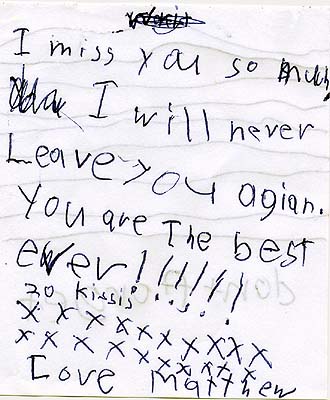 I miss you so much!
I will never
Leave you agian.
you are The best
ever!!!!!!
30 kissis
x x x x x x x x x
x x x x x x x x x x
Love Matthew